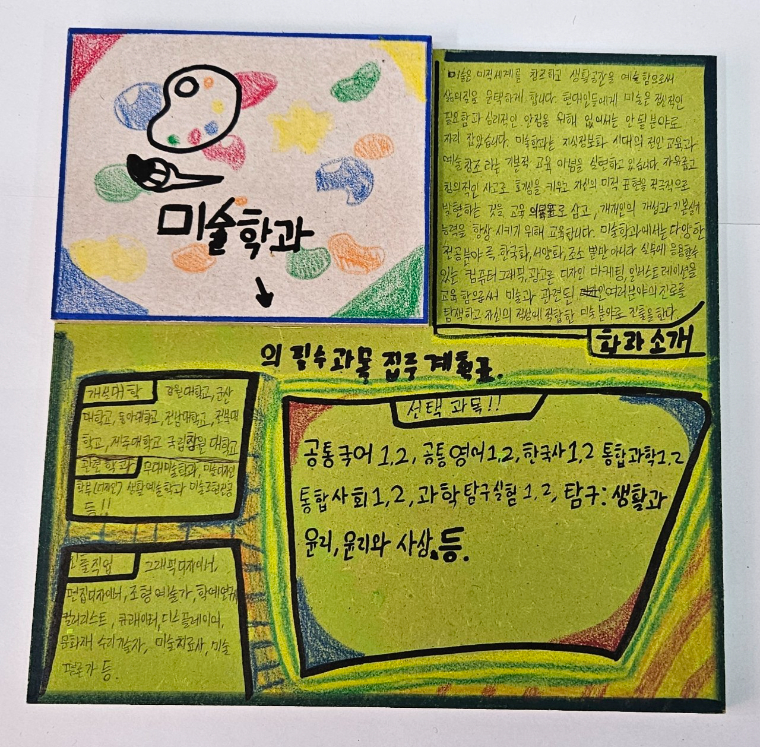 미술학과
미술은 미적세계를 창조하고 생활공간을 예술함으로써
삶의질을 윤택하게 합니다. 현대인들에게 미술은 정신적인
필요함과 심리적인 안정을 위해 없어서는 안 될 분야로
자리 잡았습니다. 미술학과는 지식정보화 시대의 전인교육과
예술 창조 라는 기본적 교육 이념을 실현하고 있습니다. 자유롭고
창의적인 사고로 표현을 키우고 자신의 미적 표현을 적극적으로
발현하는 것을 교육 로 삼고, 개개인의 개성과 기본실기
능력을 향상 시키기 위해 교육합니다. 미술학과에서는 다양한
전공분야 즉, 한국화, 서양화, 조소 뿐만 아니라 실무에 응용할수
있는 컴퓨터 그래픽, 광고론, 디자인 마케팅, 일러스트레이션을
교육 함으로써 미술과 관련된 여러분야의 진로를
탐색하고 자신의 적성에 적합한 미술분야로 진출을 한다.
학과소개
의 필수과목 집중 계획표.
개설대학 강원대학교, 군산
대학교, 동아대학교, 전남대학교, 전북대
학교, 제주대학교 국립창원대학교
관련학과 무대미술학과,
학부(디자인) 산학예술학과
등!!
진출직업 그래픽디자이너,
편집디자이너, 조형예술가, 학예연구
컬러리스트, 큐레이터, 디스플레이어,
문화재 수리 기술자, 미술치료사, 미술
평론가 등.
선택 과목!!
공통국어 1,2, 공통영어 1,2, 한국사 1,2 통합과학 1,2
통합사회 1,2, 과학탐구실험 1,2, 탐구: 생활과
윤리, 윤리와 사상.등.